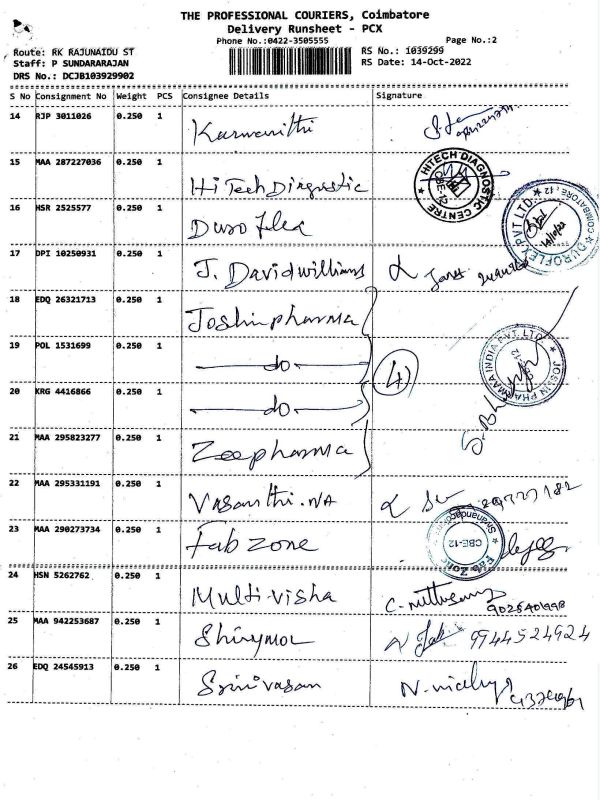 THE PROFESSIONAL COURIERS, Coimbatore
Delivery Runsheet - PCX
Phone No.:0422-3505555 Page No.:2
Route: RK RAJUNAIDU ST RS No.: 1039299
Staff: P SUNDARARAJAN RS Date: 14-Oct-2022
DRS No.: DCJB103929902
S No Consignment No Weight PCS Consignee Details Signature
14 RJP 3011026 0.250 1
15 MAA 287227036 0.250 1 Hi Tech Diagnostic
HITECH DIAGNOSTIC CENTRE CBE-12
16 HSR 2525577 0.250 1 Duroflex
DUROFLEX PVT LTD. COIMBATORE-12
17 DPI 10250931 0.250 1 J. Davidwilliams
18 EDQ 26321713 0.250 1 Joshinpharma
19 POL 1531699 0.250 1 do 4
20 KRG 4416866 0.250 1 do
21 MAA 295823277 0.250 1 Zeepharma
22 MAA 295331191 0.250 1 Vasanthi.NA
23 MAA 290273734 0.250 1 Fab Zone
Fab Zone CBE-12
24 HSN 5262762 0.250 1 Multi-visha
25 MAA 942253687 0.250 1 9944524924
26 EDQ 24545913 0.250 1 Srinivasan